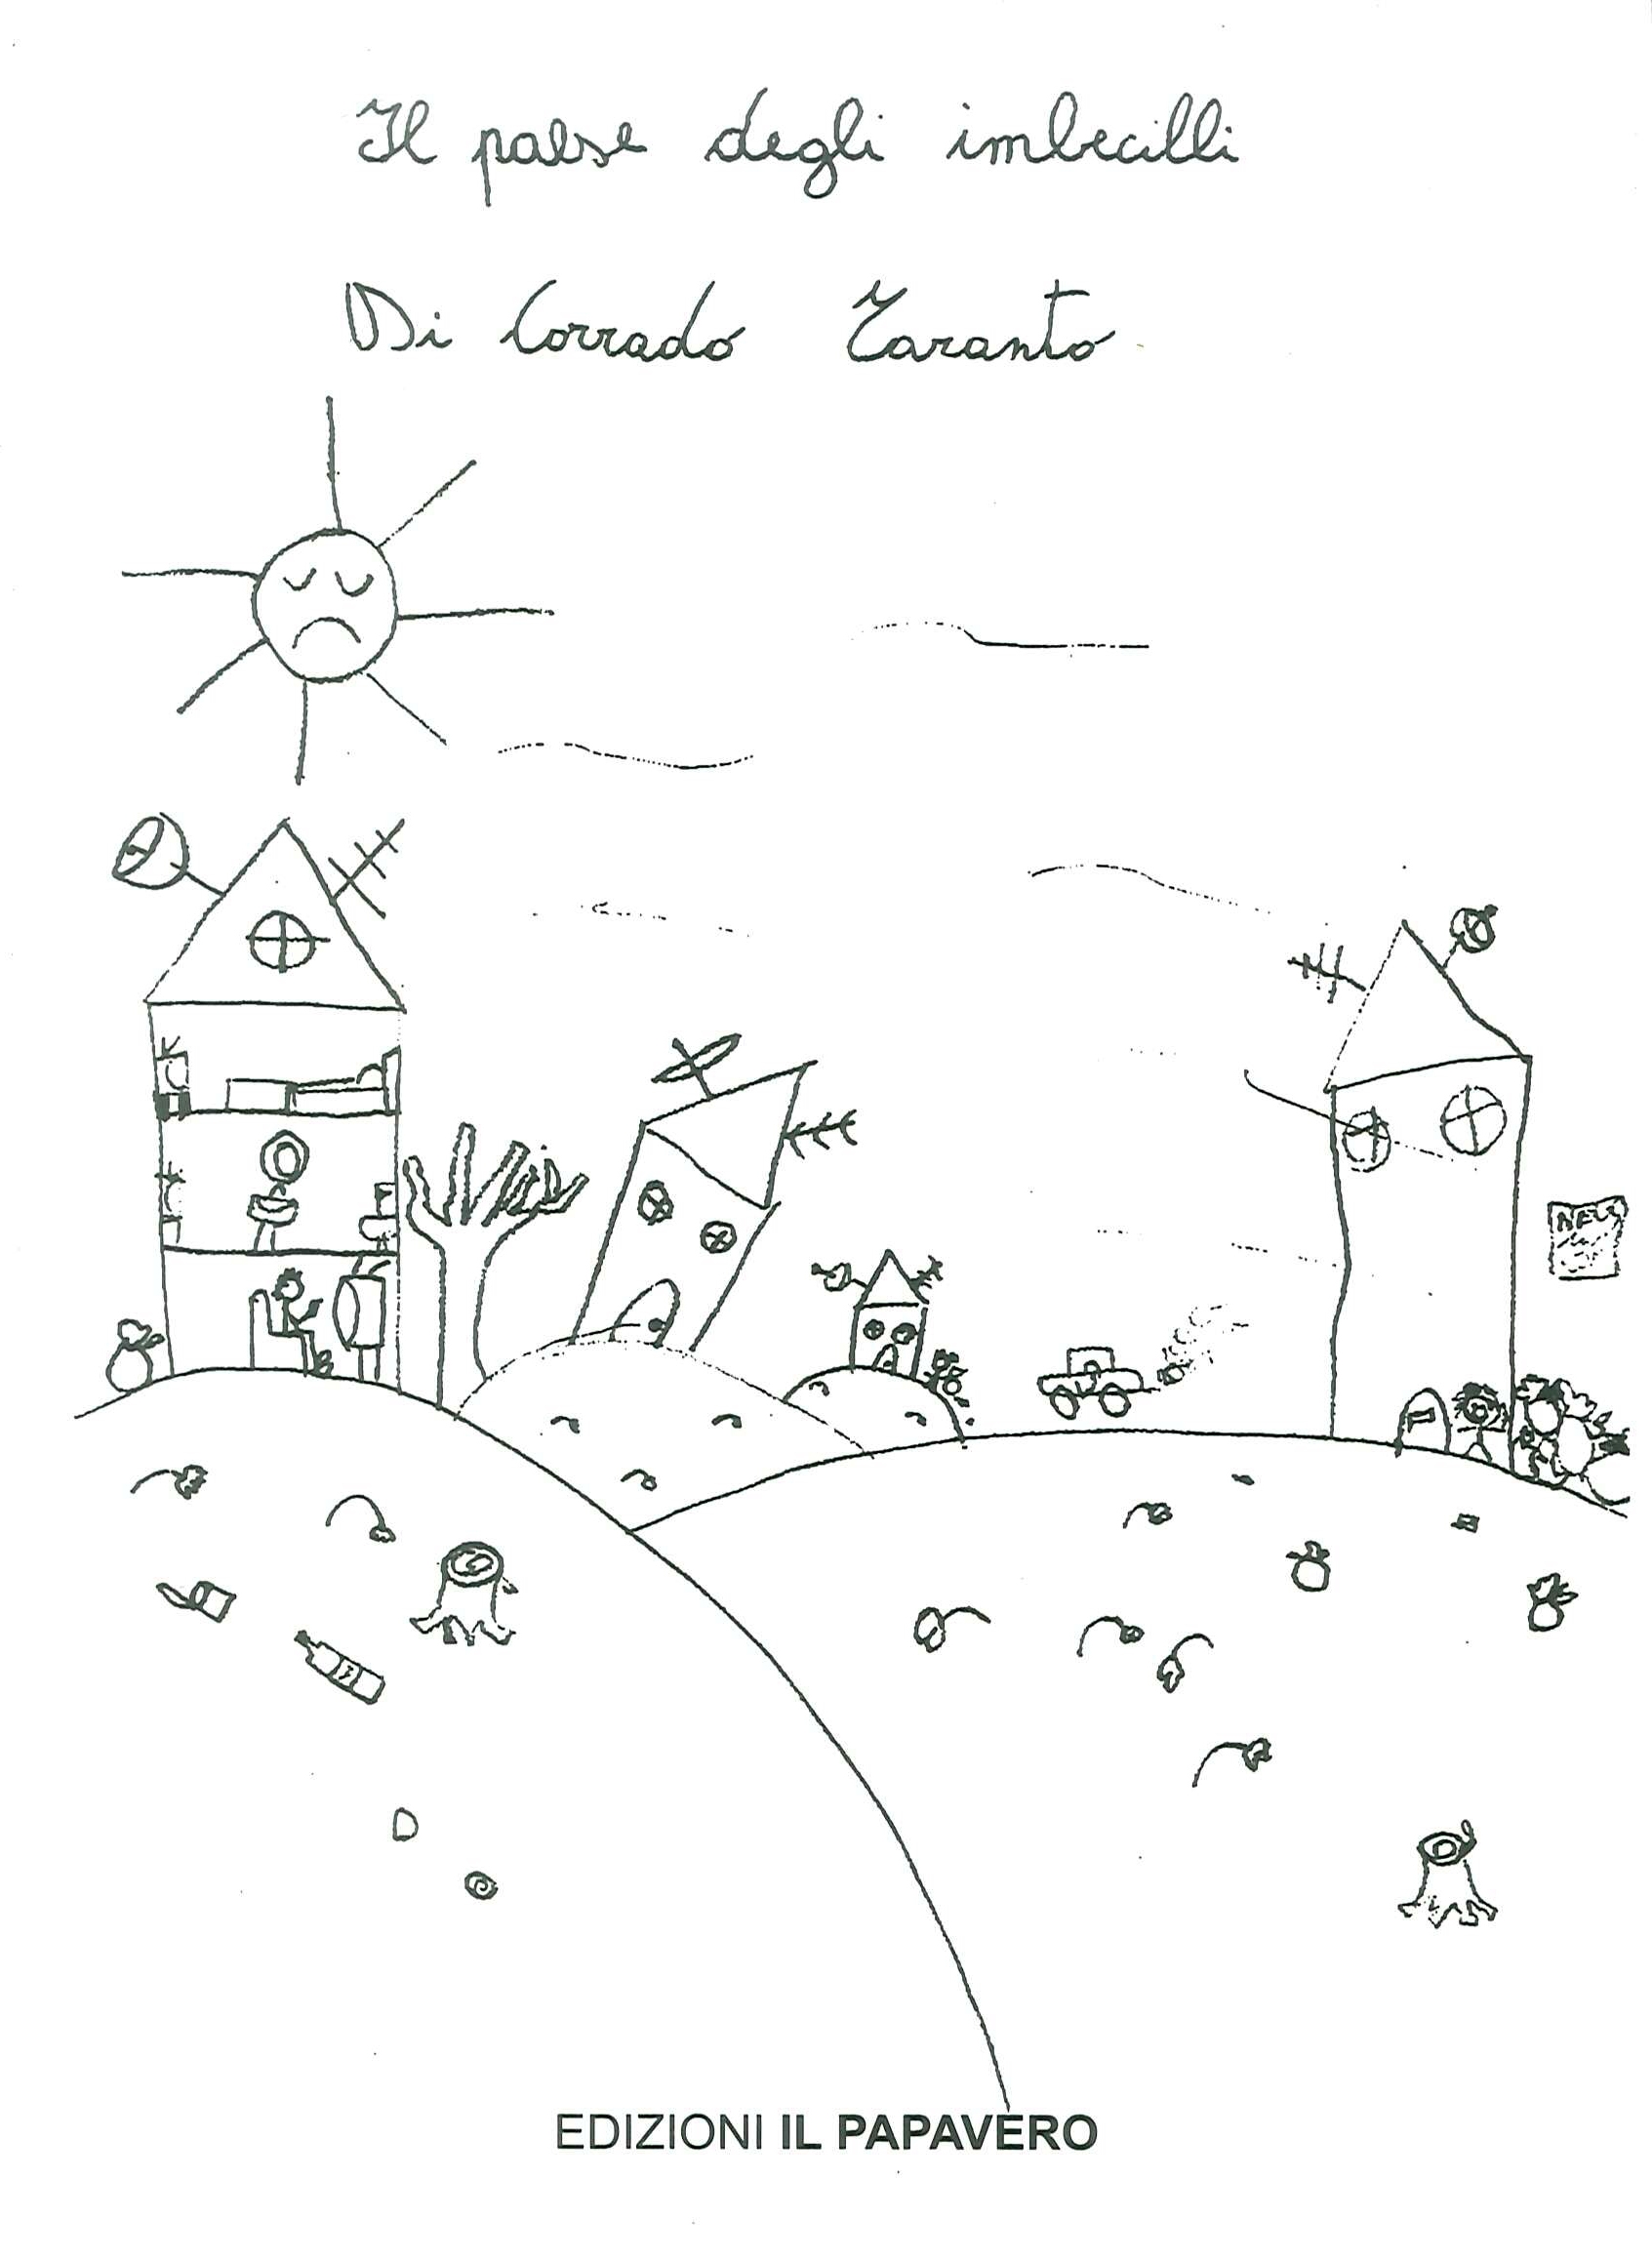 Il paese degli imbecilli
Di Corrado Taranto
NEWS
EDIZIONI IL PAPAVERO